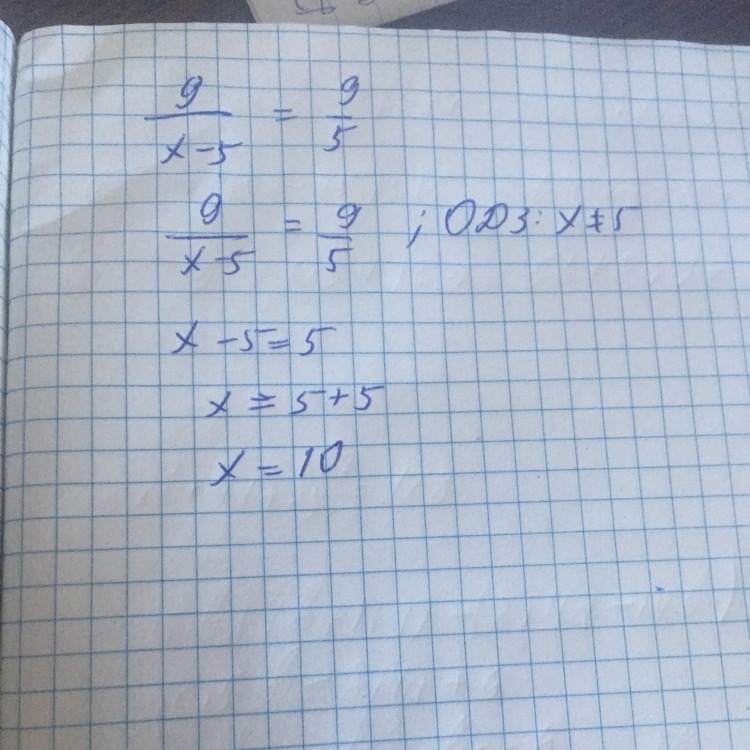 9/(x-5) = 9/5
9/(x-5) = 9/5 ; ОДЗ: x≠5
x-5=5
x=5+5
x=10